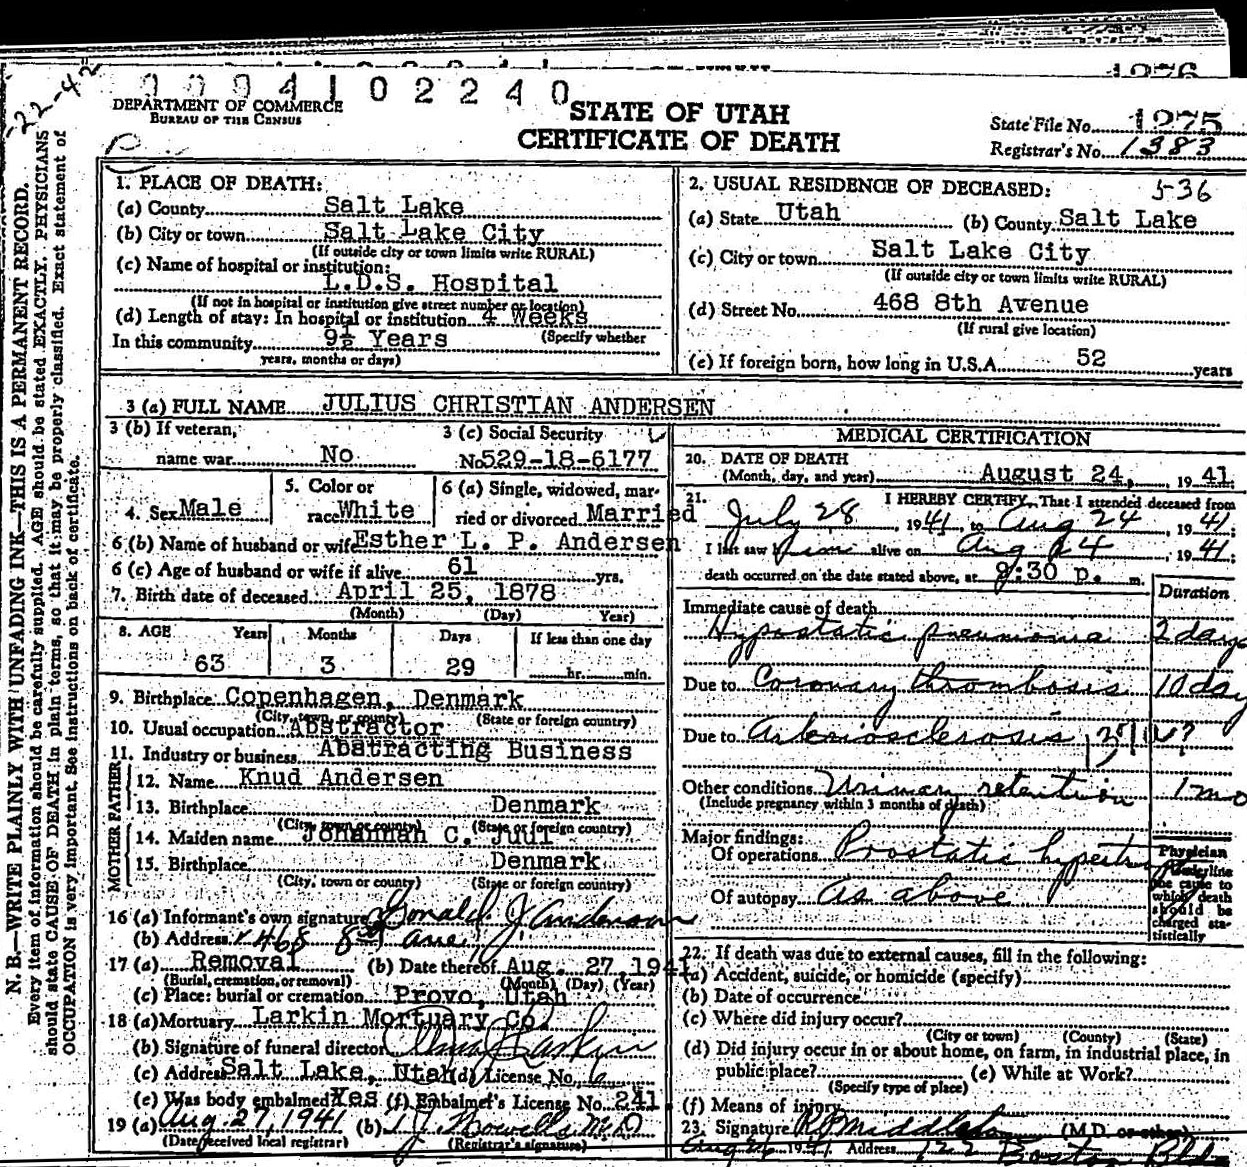 1276
-22-42
0 0 9 4 1 0 2 2 4 0
DEPARTMENT OF COMMERCE
BUREAU OF THE CENSUS
STATE OF UTAH
CERTIFICATE OF DEATH
State File No. 1275
Registrar's No. 1383
N. B.—WRITE PLAINLY WITH UNFADING INK—THIS IS A PERMANENT RECORD.
Every item of information should be carefully supplied. AGE should be stated EXACTLY. PHYSICIANS
should state CAUSE OF DEATH in plain terms, so that it may be properly classified. Exact statement of
OCCUPATION is very important. See instructions on back of certificate.
1. PLACE OF DEATH:
(a) County Salt Lake
(b) City or town Salt Lake City
(If outside city or town limits write RURAL)
(c) Name of hospital or institution:
L.D.S. Hospital
(If not in hospital or institution give street number or location)
(d) Length of stay: In hospital or institution 4 Weeks
In this community 9½ Years (Specify whether
years, months or days)
2. USUAL RESIDENCE OF DECEASED: 5-36
(a) State Utah (b) County Salt Lake
(c) City or town Salt Lake City
(If outside city or town limits write RURAL)
(d) Street No. 468 8th Avenue
(If rural give location)
(e) If foreign born, how long in U.S.A. 52 years
3 (a) FULL NAME JULIUS CHRISTIAN ANDERSEN
3 (b) If veteran,
name war No
3 (c) Social Security
No. 529-18-6177
4. Sex Male
5. Color or
race White
6 (a) Single, widowed, mar-
ried or divorced Married
6 (b) Name of husband or wife Esther L. P. Andersen
6 (c) Age of husband or wife if alive 61 yrs.
7. Birth date of deceased April 25, 1878
(Month) (Day) Year)
8. AGE Years Months Days If less than one day
63 3 29 hr. min.
9. Birthplace Copenhagen, Denmark
(City, town, or county) (State or foreign country)
10. Usual occupation Abstractor
11. Industry or business Abstracting Business
FATHER
12. Name Knud Andersen
13. Birthplace Denmark
(City, town or county) (State or foreign country)
MOTHER
14. Maiden name Johannah C. Juul
15. Birthplace Denmark
(City, town or county) (State or foreign country)
16 (a) Informant's own signature Donald J. Anderson
(b) Address 468 8th ave
17 (a) Removal (b) Date thereof Aug. 27, 1941
(Burial, cremation, or removal) (Month) (Day) (Year)
(c) Place: burial or cremation Provo, Utah
18 (a) Mortuary Larkin Mortuary Co.
(b) Signature of funeral director Larkin
(c) Address Salt Lake, Utah (d) License No. 6
(e) Was body embalmed Yes (f) Embalmer's License No. 241
19 (a) Aug. 27, 1941 (b) M.D
(Date received local registrar) (Registrar's signature)
MEDICAL CERTIFICATION
20. DATE OF DEATH
(Month, day, and year) August 24, 1941
21. I HEREBY CERTIFY, That I attended deceased from
July 28, 1941, to Aug 24, 1941;
I last saw him alive on Aug 24, 1941;
death occurred on the date stated above, at 9:30 p. m.
Duration
Immediate cause of death
Hypostatic pneumonia 2 days
Due to Coronary thrombosis 10 day
Due to Arteriosclerosis
Other conditions Urinary retention 1 mo
(Include pregnancy within 3 months of death)
Major findings:
Of operations Prostatic hypertrophy
Of autopsy As above
Physician
Underline
the cause to
which death
should be
charged sta-
tistically
22. If death was due to external causes, fill in the following:
(a) Accident, suicide, or homicide (specify)
(b) Date of occurrence
(c) Where did injury occur?
(City or town) (County) (State)
(d) Did injury occur in or about home, on farm, in industrial place, in
public place? (e) While at Work?
(Specify type of place)
(f) Means of injury
23. Signature R P Middleton (M.D. or other)
Aug 26 1941 Address 122 Boston Bldg